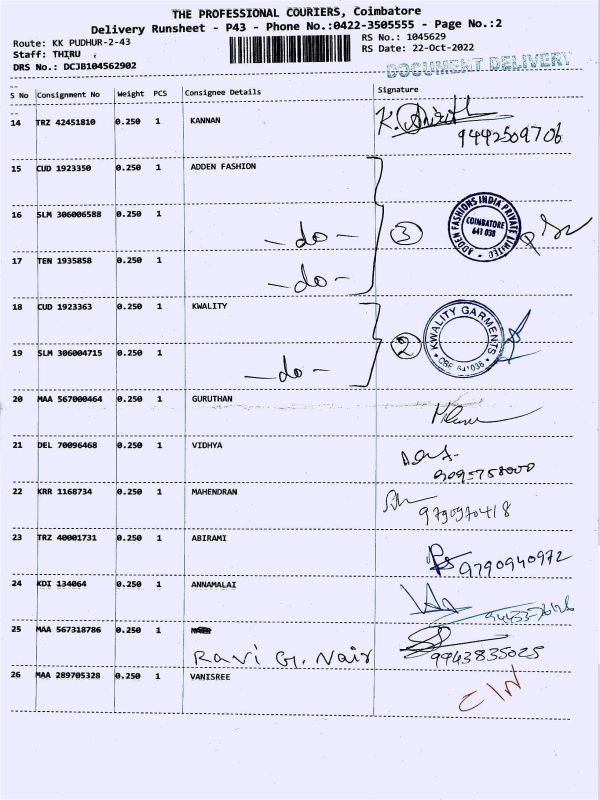 THE PROFESSIONAL COURIERS, Coimbatore
Delivery Runsheet - P43 - Phone No.:0422-3505555 - Page No.:2
Route: KK PUDHUR-2-43 RS No.: 1045629
Staff: THIRU RS Date: 22-Oct-2022
DRS No.: DCJB104562902 DOCUMENT DELIVERY
S No Consignment No Weight PCS Consignee Details Signature
14 TRZ 42451810 0.250 1 KANNAN
9442509706
15 CUD 1923350 0.250 1 ADDEN FASHION
16 SLM 306006588 0.250 1 -do- 3 ADDEN FASHIONS INDIA PRIVATE LIMITED COIMBATORE 641 038
17 TEN 1935858 0.250 1 -do-
18 CUD 1923363 0.250 1 KWALITY
19 SLM 306004715 0.250 1 -do- 2 KWALITY GARMENTS CBE 641038
20 MAA 567000464 0.250 1 GURUTHAN
21 DEL 70096468 0.250 1 VIDHYA
22 KRR 1168734 0.250 1 MAHENDRAN
9790970418
23 TRZ 40001731 0.250 1 ABIRAMI
9790940972
24 KDI 134064 0.250 1 ANNAMALAI
25 MAA 567318786 0.250 1
Ravi G. Nair 9943835025
26 MAA 289705328 0.250 1 VANISREE